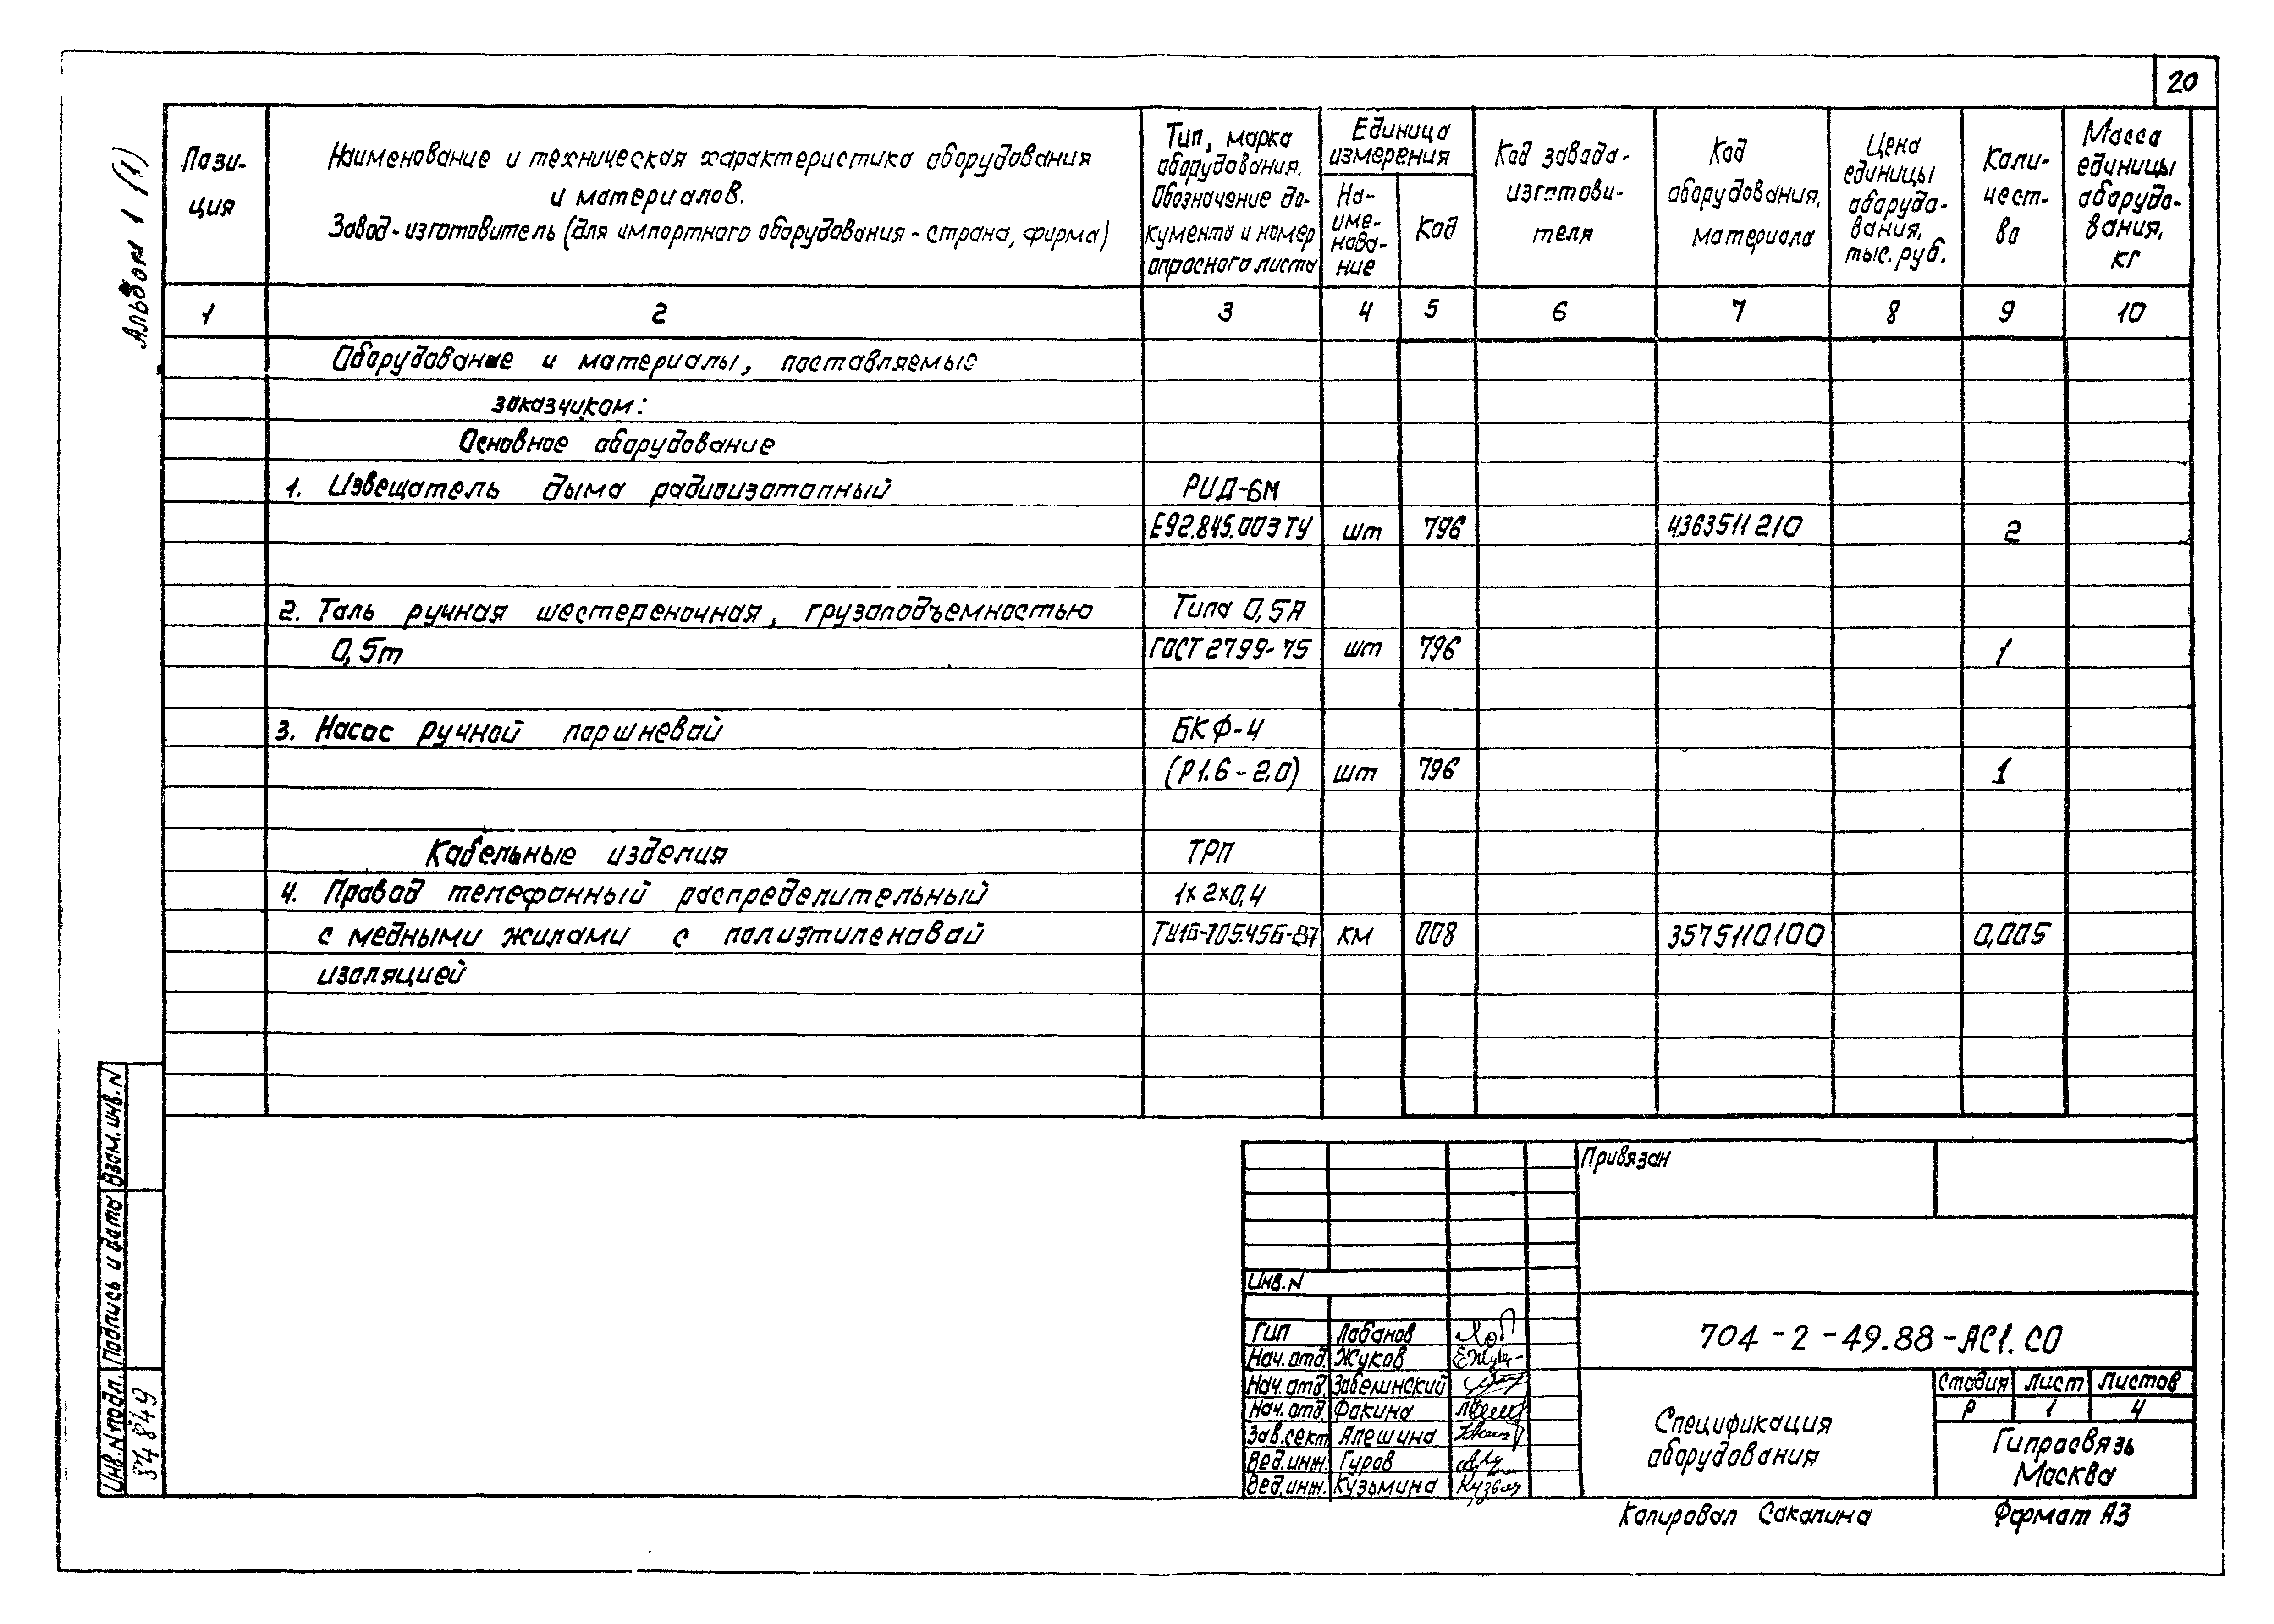 20
Альбом 1 (1)
Пози-
ция
Наименование и техническая характеристика оборудования
и материалов.
Завод-изготовитель (для импортного оборудования - страна, фирма)
Тип, марка
оборудования.
Обозначение до-
кумента и номер
опросного листа
Единица
измерения
На-
име-
нова-
ние
Код
Код завода-
изготови-
теля
Код
оборудования,
материала
Цена
единицы
оборудо-
вания,
тыс. руб.
Коли-
чест-
во
Масса
единицы
оборудо-
вания,
кг
1 2 3 4 5 6 7 8 9 10
Оборудование и материалы, поставляемые
заказчиком:
Основное оборудование
1. Извещатель дыма радиоизотопный РИД-6М
Е92.845.003ТУ шт 796 4363511210 2
2. Таль ручная шестереночная, грузоподъемностью Типа 0,5А
0,5т ГОСТ 2799-75 шт 796 1
3. Насос ручной поршневой БКФ-4
(Р1.6-2.0) шт 796 1
Кабельные изделия ТРП
4. Провод телефонный распределительный 1х2х0,4
с медными жилами с полиэтиленовой ТУ16-705.456-87 км 008 3575110100 0,005
изоляцией
Взам. инв. N
Подпись и дата
Инв. N подл.
84849
Привязан
Инв. N
Гип Лобанов
Нач. отд. Жуков
Нач. отд. Забелинский
Нач. отд. Фокина
Зав. сект Алешина
Вед. инж. Гуров
Вед. инж. Кузьмина
704-2-49.88-АС1.СО
Спецификация
оборудования
Стадия Лист Листов
Р 1 4
Гипросвязь
Москва
Копировал Сокалина Формат А3